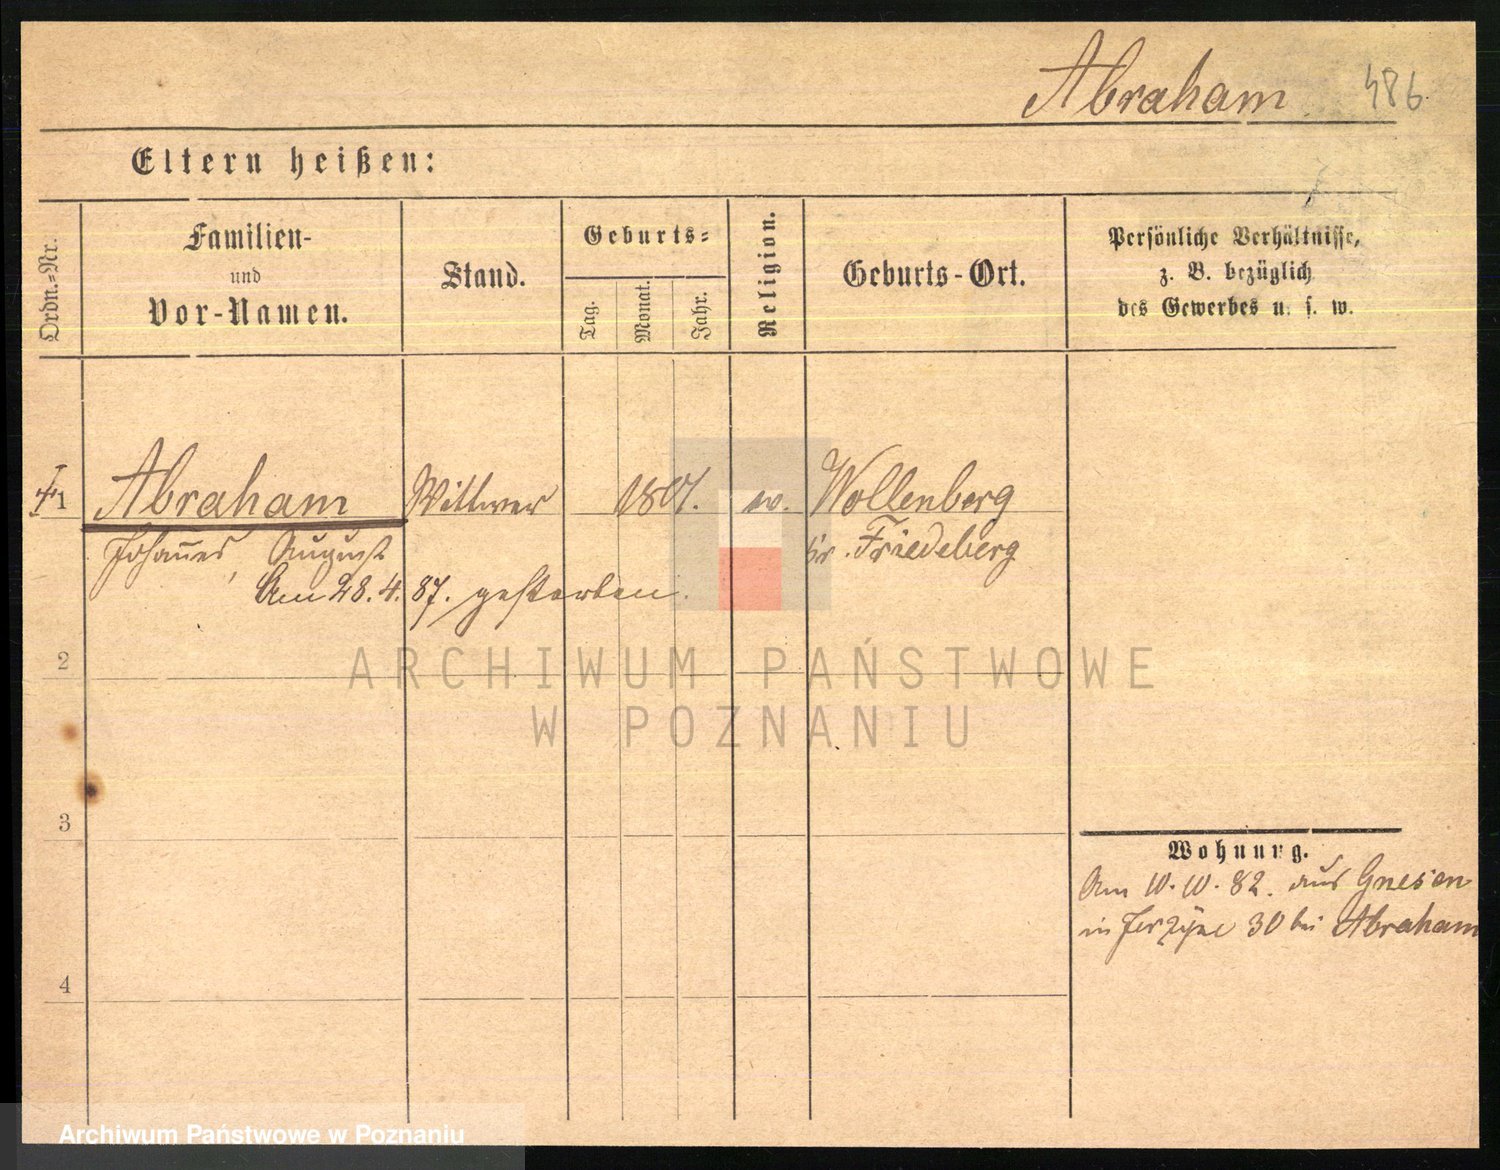 Abraham 486
Eltern heißen:
Ordn.=Nr.
Familien-
und
Vor-Namen.
Stand.
Geburts=
Tag.
Monat.
Jahr.
Religion.
Geburts-Ort.
Persönliche Verhältnisse,
z. B. bezüglich
des Gewerbes u. s. w.
1 Abraham Wittwer 1801. ev. Wollenberg
Johannes, August Kr. Friedeberg
Am 28. 4. 87. gestorben.
2
ARCHIWUM PAŃSTWOWE
W POZNANIU
3
Wohnung.
Am 10. 10. 82. aus Gnesen
in 30 bei Abraham
4
Archiwum Państwowe w Poznaniu